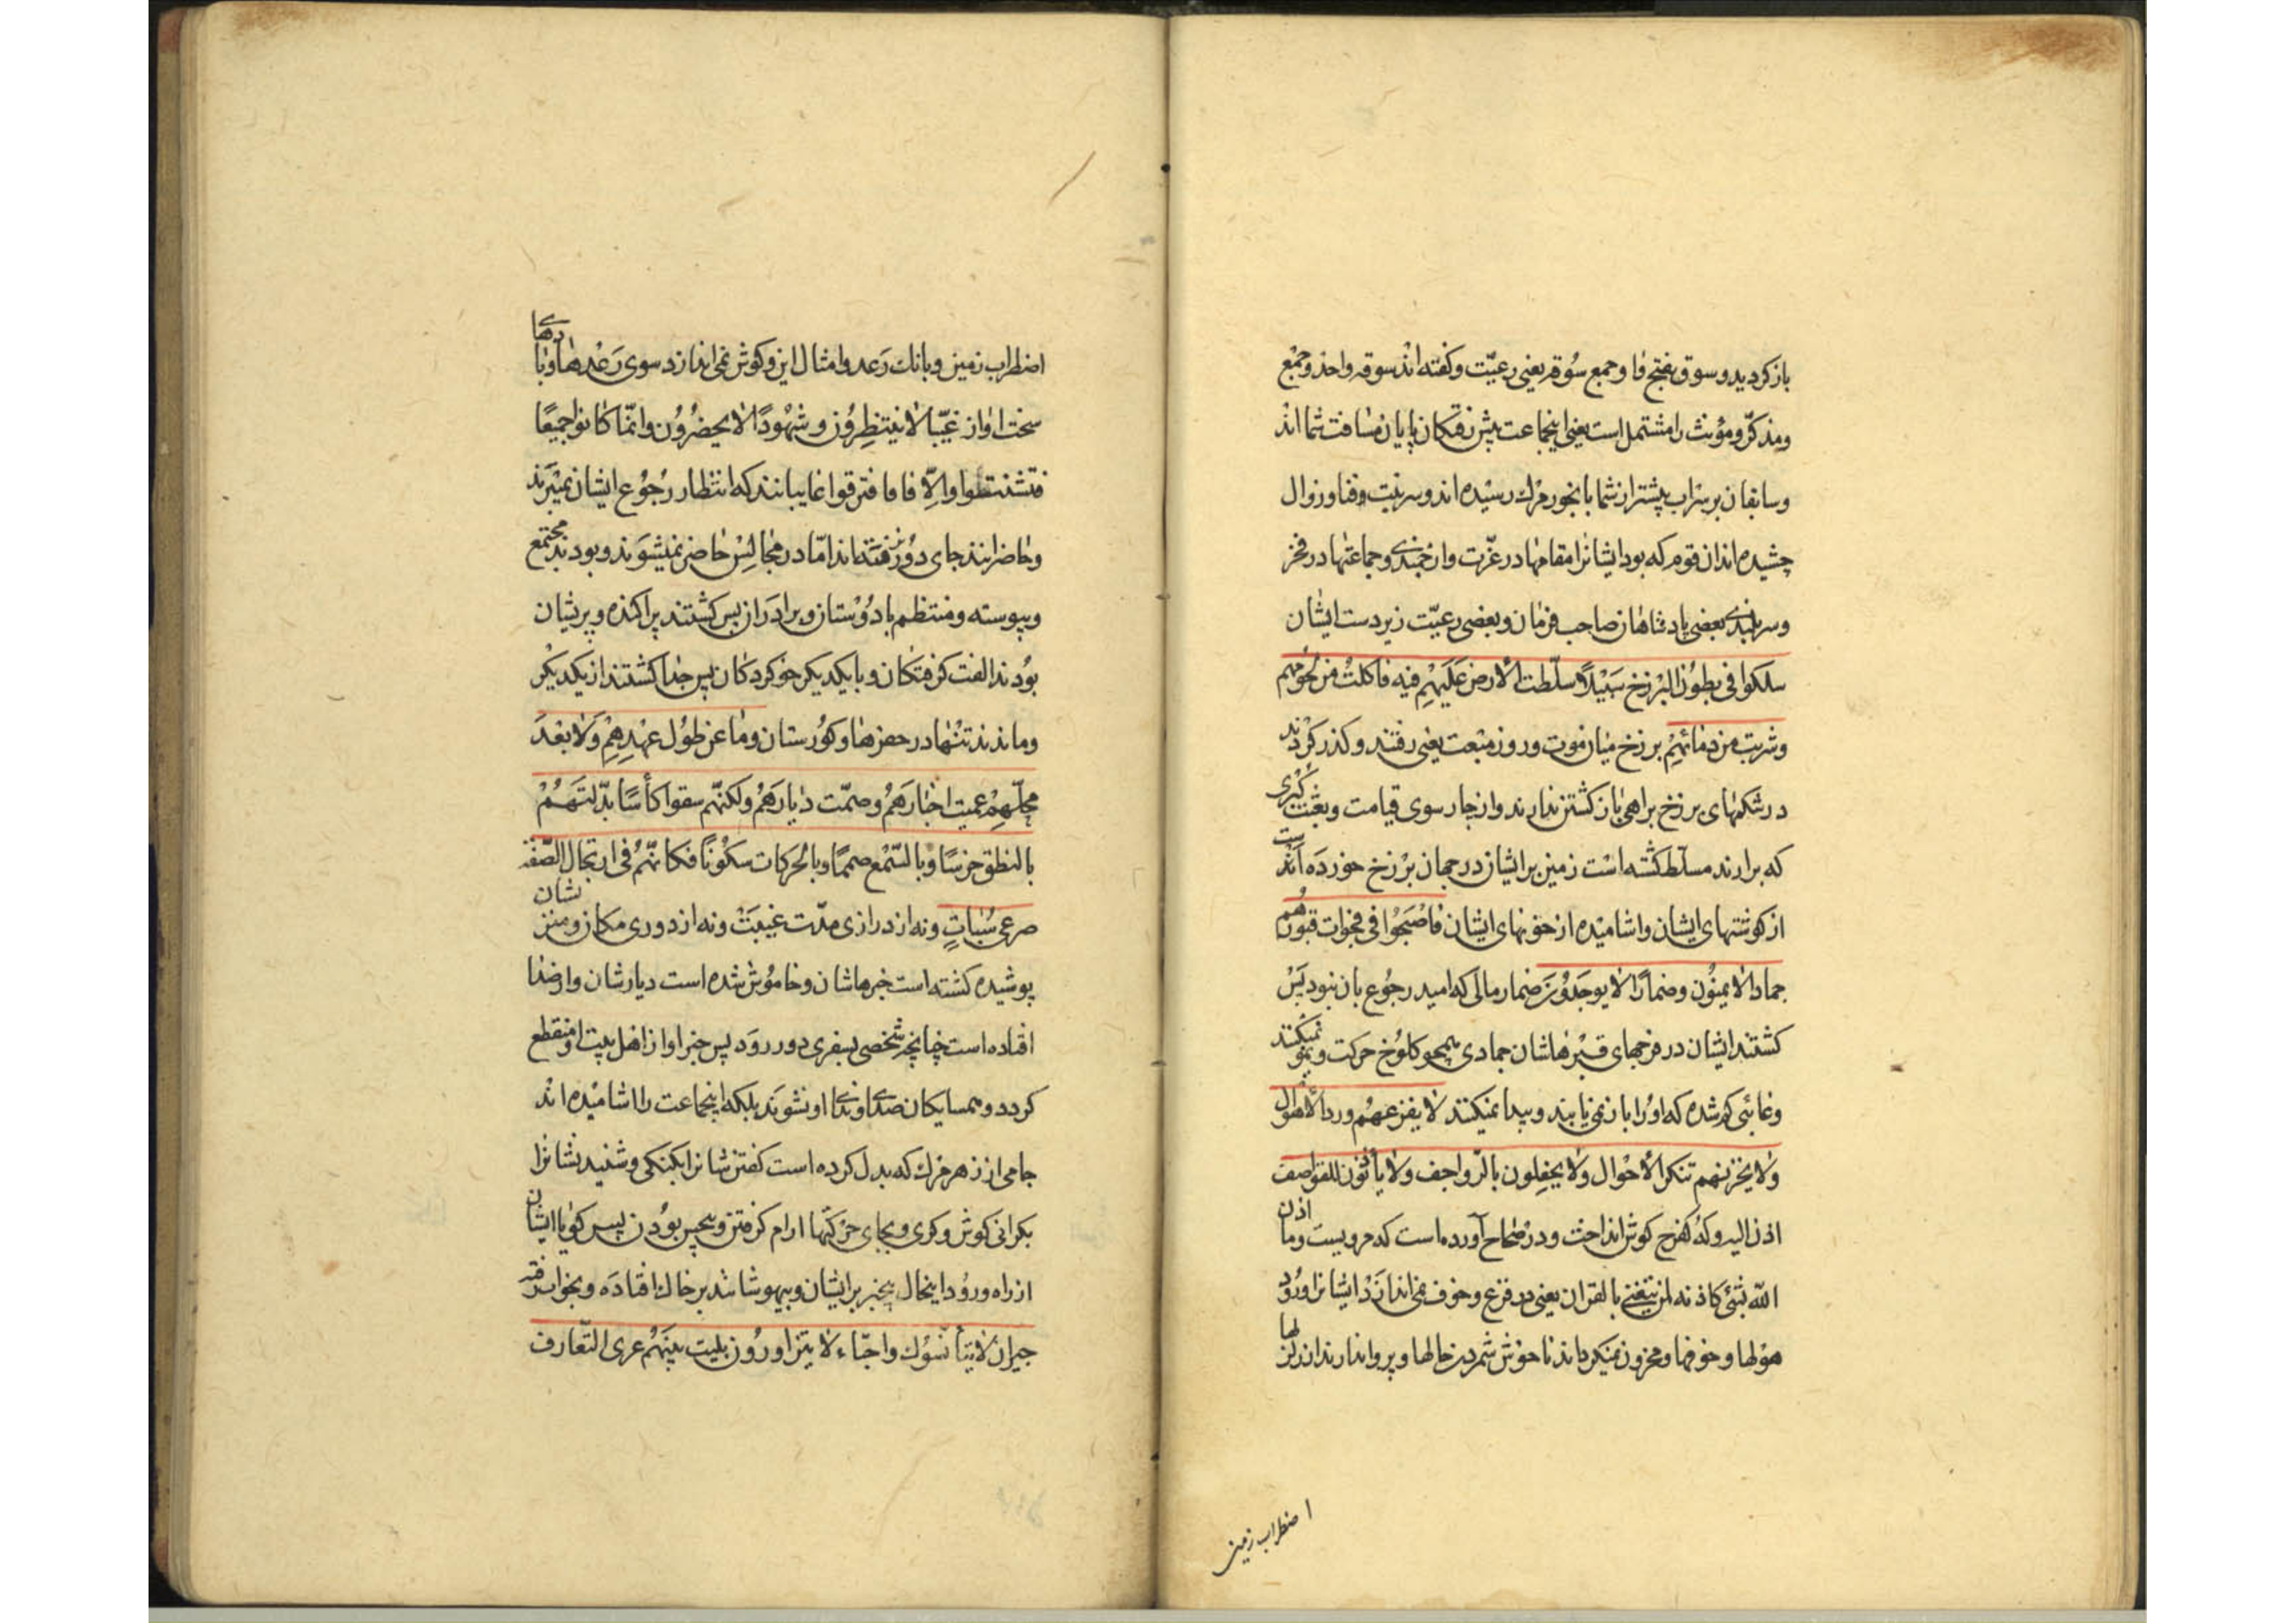 باز کردید و سوق بفتح فا و جمع سُوقه یعنی رعیّت و کفته اند سوقه واحد و جمع
و مذکّر و مؤنث را مشتمل است یعنی اینجماعت پیش رفتکان پایان مسافت شما اند
و سابقان بر سراب پیشتر از شما بآبخور مرك رسیده اند و سرنبت و فنا و زوال
چشیده اند ان قوم که بود ایشانرا مقامها در عزّت و ارجمندی و جماعتها در فخر
و سربلندی بعضی پادشاهان صاحب فرمان و بعضی رعیّت زیردست ایشان
سلکوا فی بطُون البرْزخ سَبیْلاً سلّطت الأرض عَلَیْهِم فیه فاکلتْ من لُحومهم
و شربت من دمائهِمْ برزخ میان موت و روز مبْعث یعنی رفتند و کذر کردند
در شکمهای برزخ براهی باز کشتن ندارند و از ناچار سوی قیامت و بعْث کُبْری
که برارند مسلّط کشته است زمین بر ایشان در جهان برْزخ خورده است
از کوشتهای ایشان و اشامیْده از خونهای ایشان فاصْبَحُوا فی فجوات قبُورهُم
جمادا لا ینمُون و ضمارًا لا یوجَدُون ضمار مالی که امید رجُوع بان نبود پَسْ
کشتند ایشان در فرجهای قبْرهاشان جمادی همچو کلُوخ حرکت و نمو نمیکنند
و غائبی کم شده که اوُرا باز نمی یابند و پیدا نمیکنند لا یفزعهُم ورد الأهوال
و لا یحزنهم تنکر الأحْوال و لا یحفِلون بالرّواجف و لا یأذنون للقواصف
اذن الیه و له کفرح کوش انداخت و در صحاح آورده است که مرویست و ما اذن
اللّٰه بشئ کاذنه لمن یتغنی بالقران یعنی در فزع و خوف نمی اندازدْ ایشانرا ورُود
هوْلها و خوفها و محزون نمیکرداند ناخوش شمردن حالها و پروا ندارند از زلزلها
اضطراب زمین
اضطراب زمین و بانك رَعد و امثال این و کوش نمی اندازد سوی رَعْدها و بادهای
سخت اواز غیّبا لا ینتظِرُون و شهُودًا لا یحضُرُون و انّما کانوا جمیعًا
فتشتتوا و اُلّافا فافترقوا غایبانند که انتظار رُجُوع ایشان نمیْبرند
و حاضرانند جای دوُر نرفته اند امّا در مجالِسْ حاضر نمیشوَند و بودند مجتمع
و پیوسته و منتظم با دُوْستان و برادَران پس کشتند پراکنده و پریشان
بوُدند الفت کرفتکان و با یکدیکر خو کردکان پس جدا کشتند از یکدیکر
و ماندند تنْها در حفرها و کوُرستان و مٰا عن طوُل عهْدِهِمْ وَ لا بعْدَ
محلّهِمْ عمیت اخبارَهُمْ و صمّت دیارَهُمْ و لکنّهم سقوا کأسًا بدّلتهُمْ
بالنطق خرسًا و بالسّمْع صممًا و بالحَرکات سکُونًا فکانّهُم فی ارتجال الصّفة
صرعی سُبٰاتٍ و نه از درازی مدّت غیْبت و نه از دوری مکان و منزلشان
پوشیده کشته است خبرهاشان و خاموُش شده است دیارشان و ارضا
افتاده است چنانچه شخصی بسفری دور روَد پس خبر او از اهل بیت او منقطع
کردد و همسایکان صدای و ندای او نشنوند بلکه اینجماعت را اشامیْده اند
جامی از زهر مرك که بدل کرده است کفتن شانرا بکنکی و شنیدنشانرا
بکرانی کوش و کری و بجای حرَکتها ارام کرفتن و بیحس بوُدن پس کویا ایشان
از راه ورُود اینحال بیخبر بر ایشان و بیهوشانند بر خاك افتادَه و بخواب رفته
جیرانٌ لا یتأنّسوُن و احبّاء لا یتزاورُون بلیت بینَهُم عری التّعارف